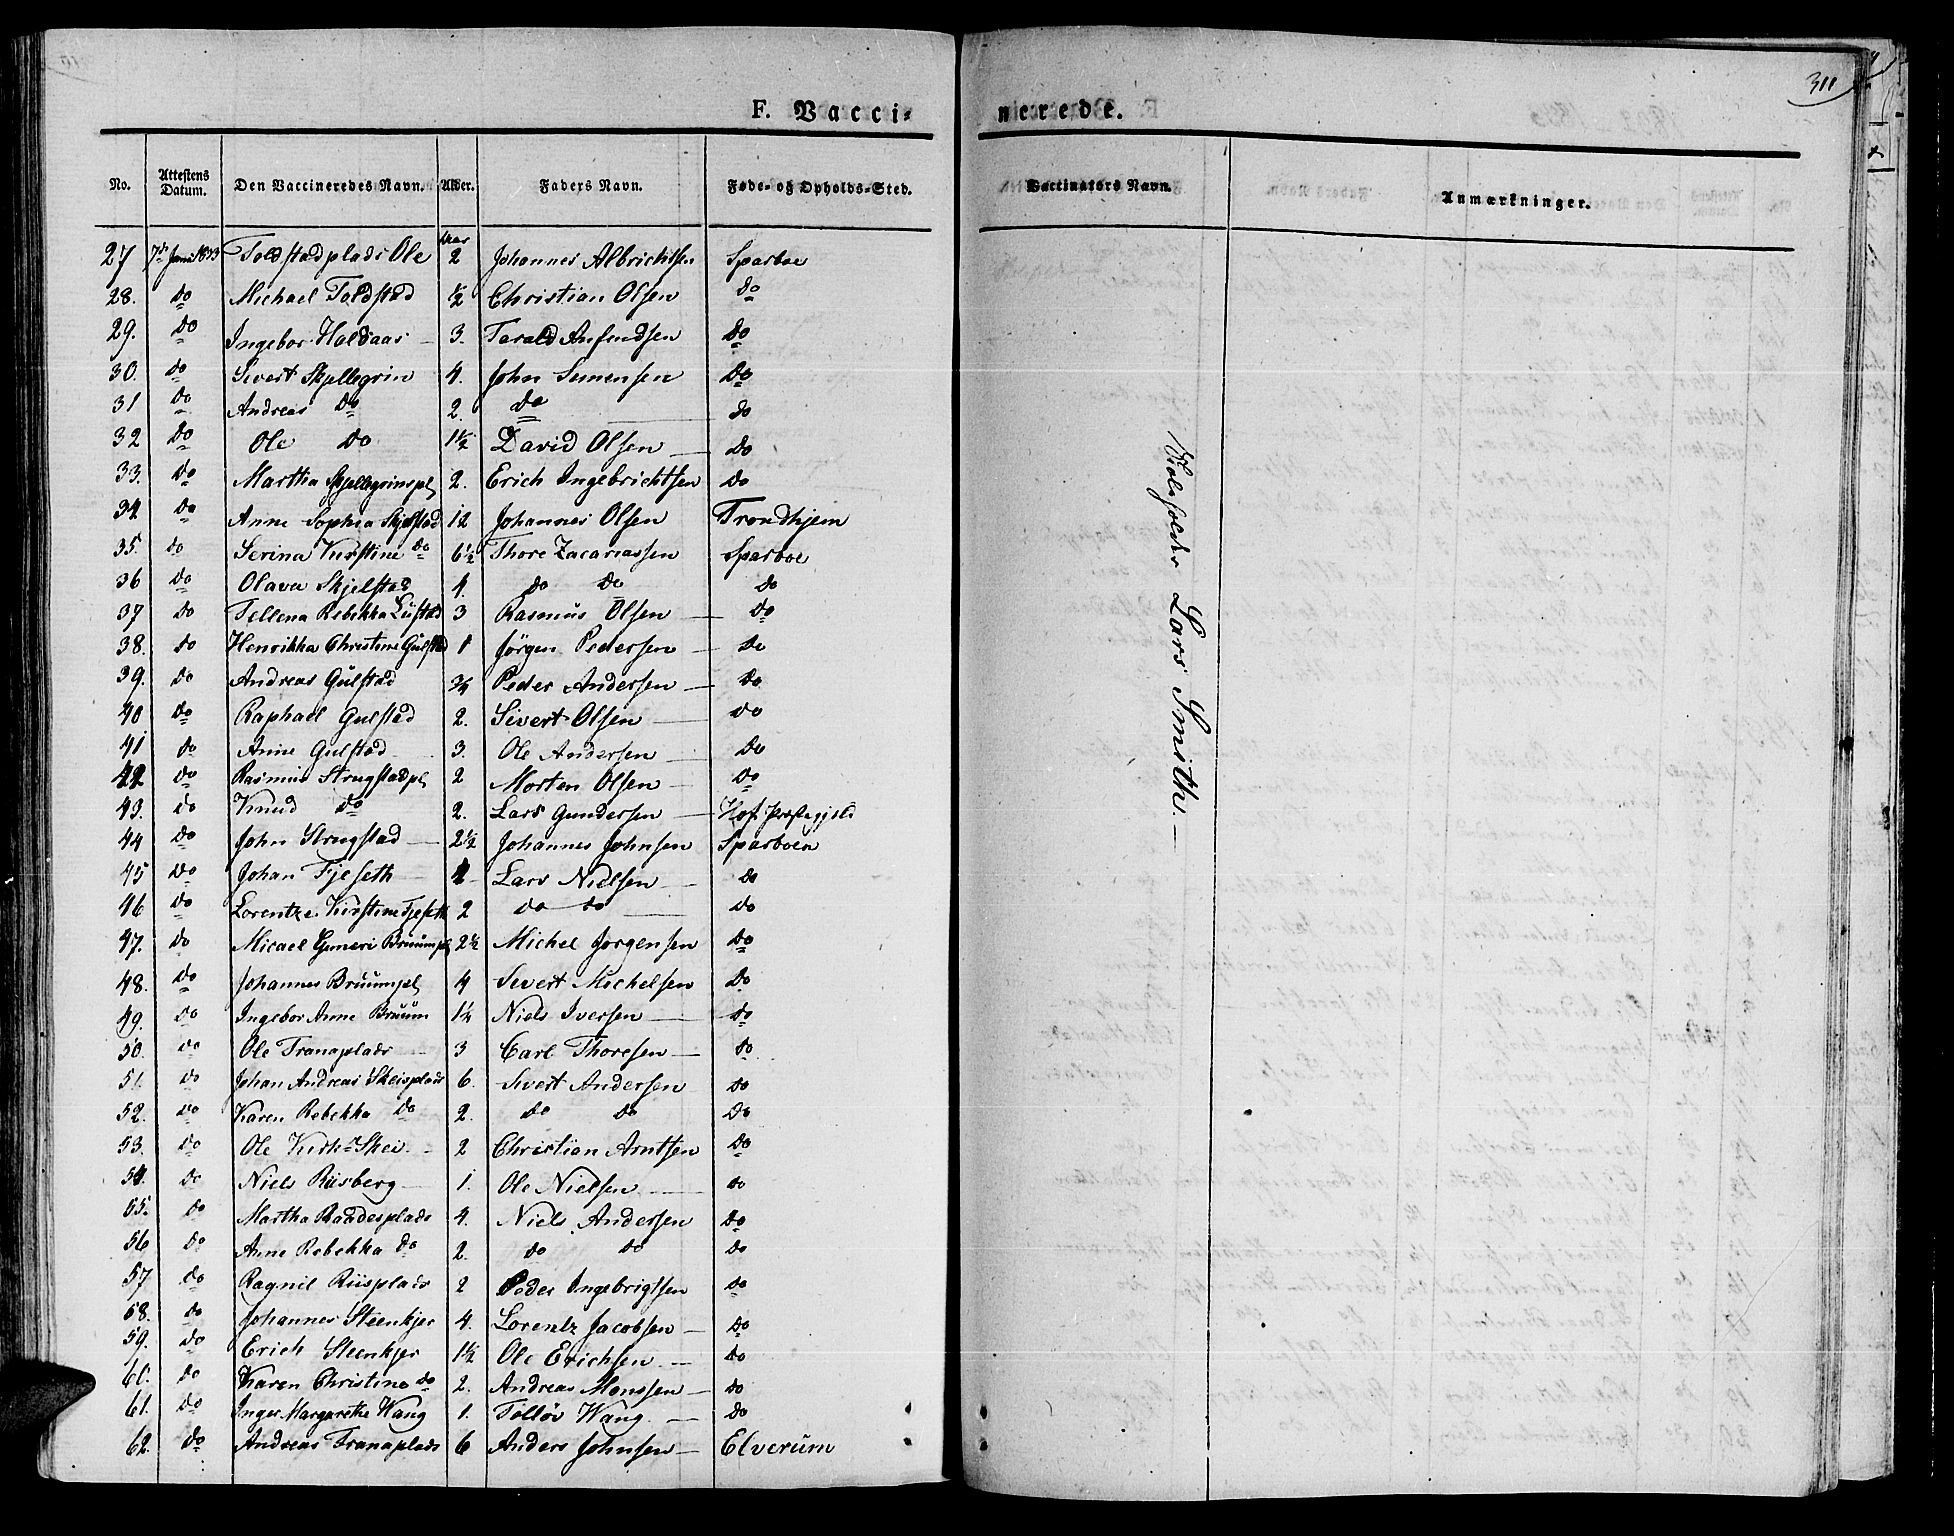 311
F. Vacci-
nerede.
No. Attestens Datum. Den Vaccineredes Navn. Alder. Faders Navn. Føde- og Opholds-Sted.
Vaccinators Navn. Anmærkninger.
27 7de Juni 1833 Foldstadplads Ole 2 Johannes Albrichtsen Sparboe
28. do Michael Foldstad ½ Christian Olsen do
29. do Ingebor Haldaas 3. Tarald Anfindsen do
30. do Sivert Skjellegrin 4. John Simensen do
31 do Andreas do 2. do do
32 do Ole do 1½ David Olsen do
33. do Martha Skjellegrinspl 2. Erich Ingebrichtsen do
34 do Anne Sophia Skjelstad 12 Johannes Olsen Trondhjem
35. do Serina Kirstine do 6½ Thore Zacariassen Sparboe
36 do Olava Skjelstad 4. do do do
37 do Tellena Rebekka 3 Rasmus Olsen do
38. do Henrikka Christine Gulstad 1 Jörgen Pedersen do
39. do Andreas Gulstad ¾ Peder Andersen do
40 do Raphael Gulstad 2. Sivert Olsen do
41 do Anne Gulstad 3. Ole Andersen do
42 do Rasmus Strugstadpl 2 Morten Olsen do
43. do Knud do 2. Lars Gundersen Hof Præstegjeld
44 do John Strugstad 2½ Johannes Johnsen Sparboen
45 do Johan Fjeseth 4 Lars Nielsen do
46 do Lorentze Kirstine Fjeseth 2 do do do
47. do Micael Gumeri Bruumpl 2½ Michel Jörgensen do
48. do Johannes Bruumpl 4 Sivert Michelsen do
49. do Ingebor Anne Bruum 1¼ Niels Iversen do
50. do Ole Tranaplads 3 Carl Thoresen do
51. do Johan Andreas Skeisplads 6. Sivert Andersen do
52. do Karen Rebekka do 2. do do do
53. do Ole Kirk-Skei 2 Christian Arntsen do
54. do Niels Riisberg 1. Ole Nielsen do
55. do Martha Raadesplads 4. Niels Andersen do
56 do Anne Rebekka do 2. do do do
57 do Ragnil Riisplads 2 Peder Ingebrigtsen do
58. do Johannes Steenkjer 4. Lorentz Jacobsen do
59. do Erich Steenkjer 1½ Ole Erichsen do
60. do Karen Christine do 2. Andreas Monssen do
61. do Inger Margarethe Wang 1. Tolløv Wang do
62. do Andreas Tranaplads 6 Anders Johnsen Elverum
Skoleholder Lars Smith.